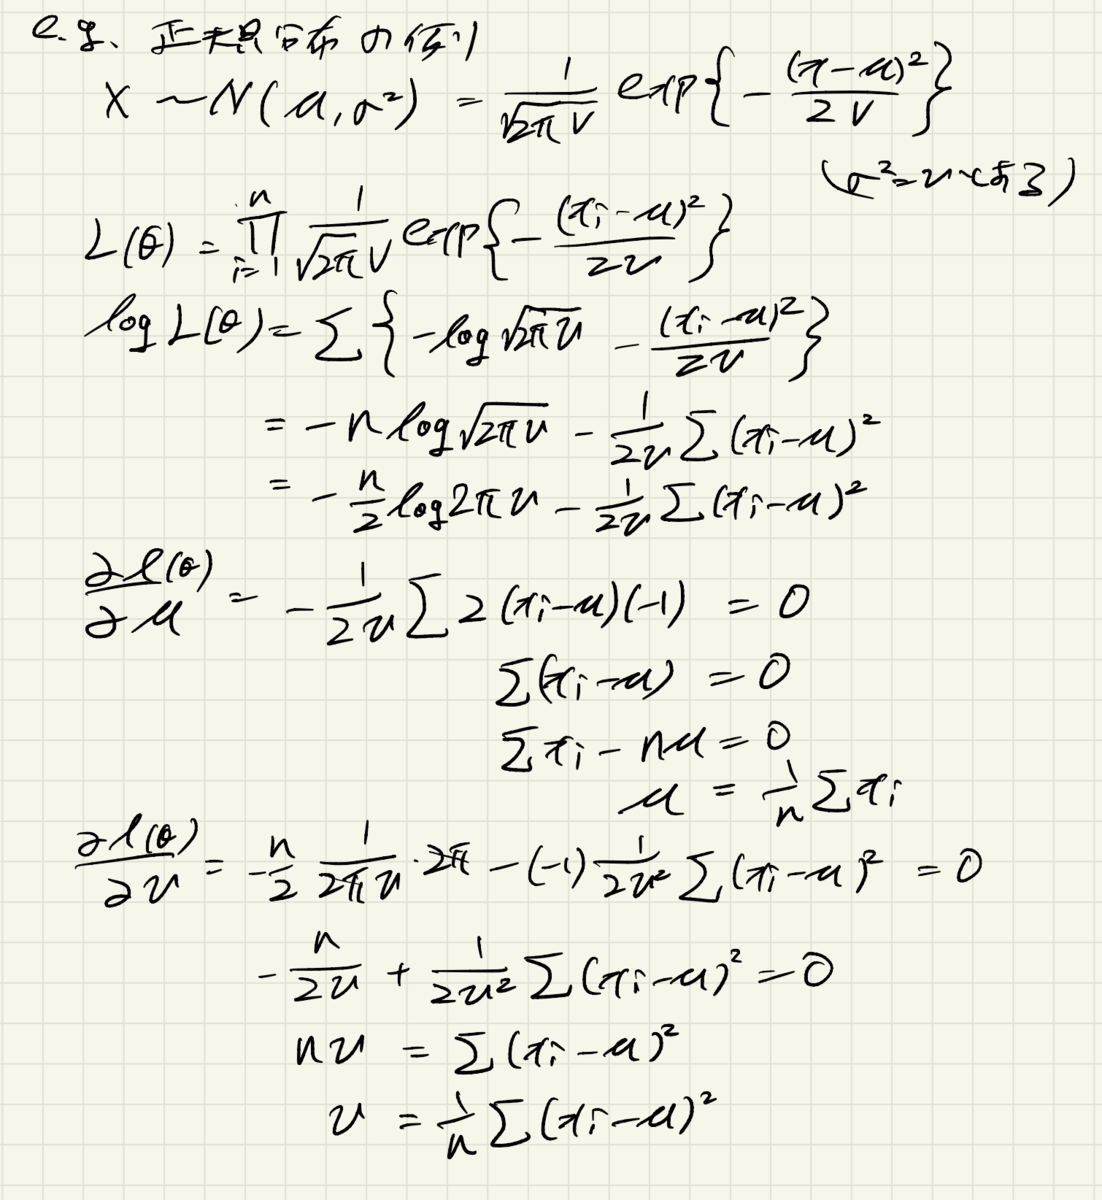 e.g. 正規分布の例
X ~ N(μ, σ²) = 1/√2π v exp{ - (x-μ)²/2v }
(σ²=v とする)
L(θ) = ∏_{i=1}^{n} 1/√2π v exp{ - (xi-μ)²/2v }
log L(θ) = Σ { -log √2πv - (xi-μ)²/2v }
= -n log √2πv - 1/2v Σ (xi-μ)²
= - n/2 log 2πv - 1/2v Σ (xi-μ)²
∂ℓ(θ)/∂μ = - 1/2v Σ 2(xi-μ)(-1) = 0
Σ(xi-μ) = 0
Σxi - nμ = 0
μ = 1/n Σ xi
∂ℓ(θ)/∂v = - n/2 1/2πv · 2π - (-1) 1/2v² Σ (xi-μ)² = 0
- n/2v + 1/2v² Σ (xi-μ)² = 0
nv = Σ (xi-μ)²
v = 1/n Σ (xi-μ)²